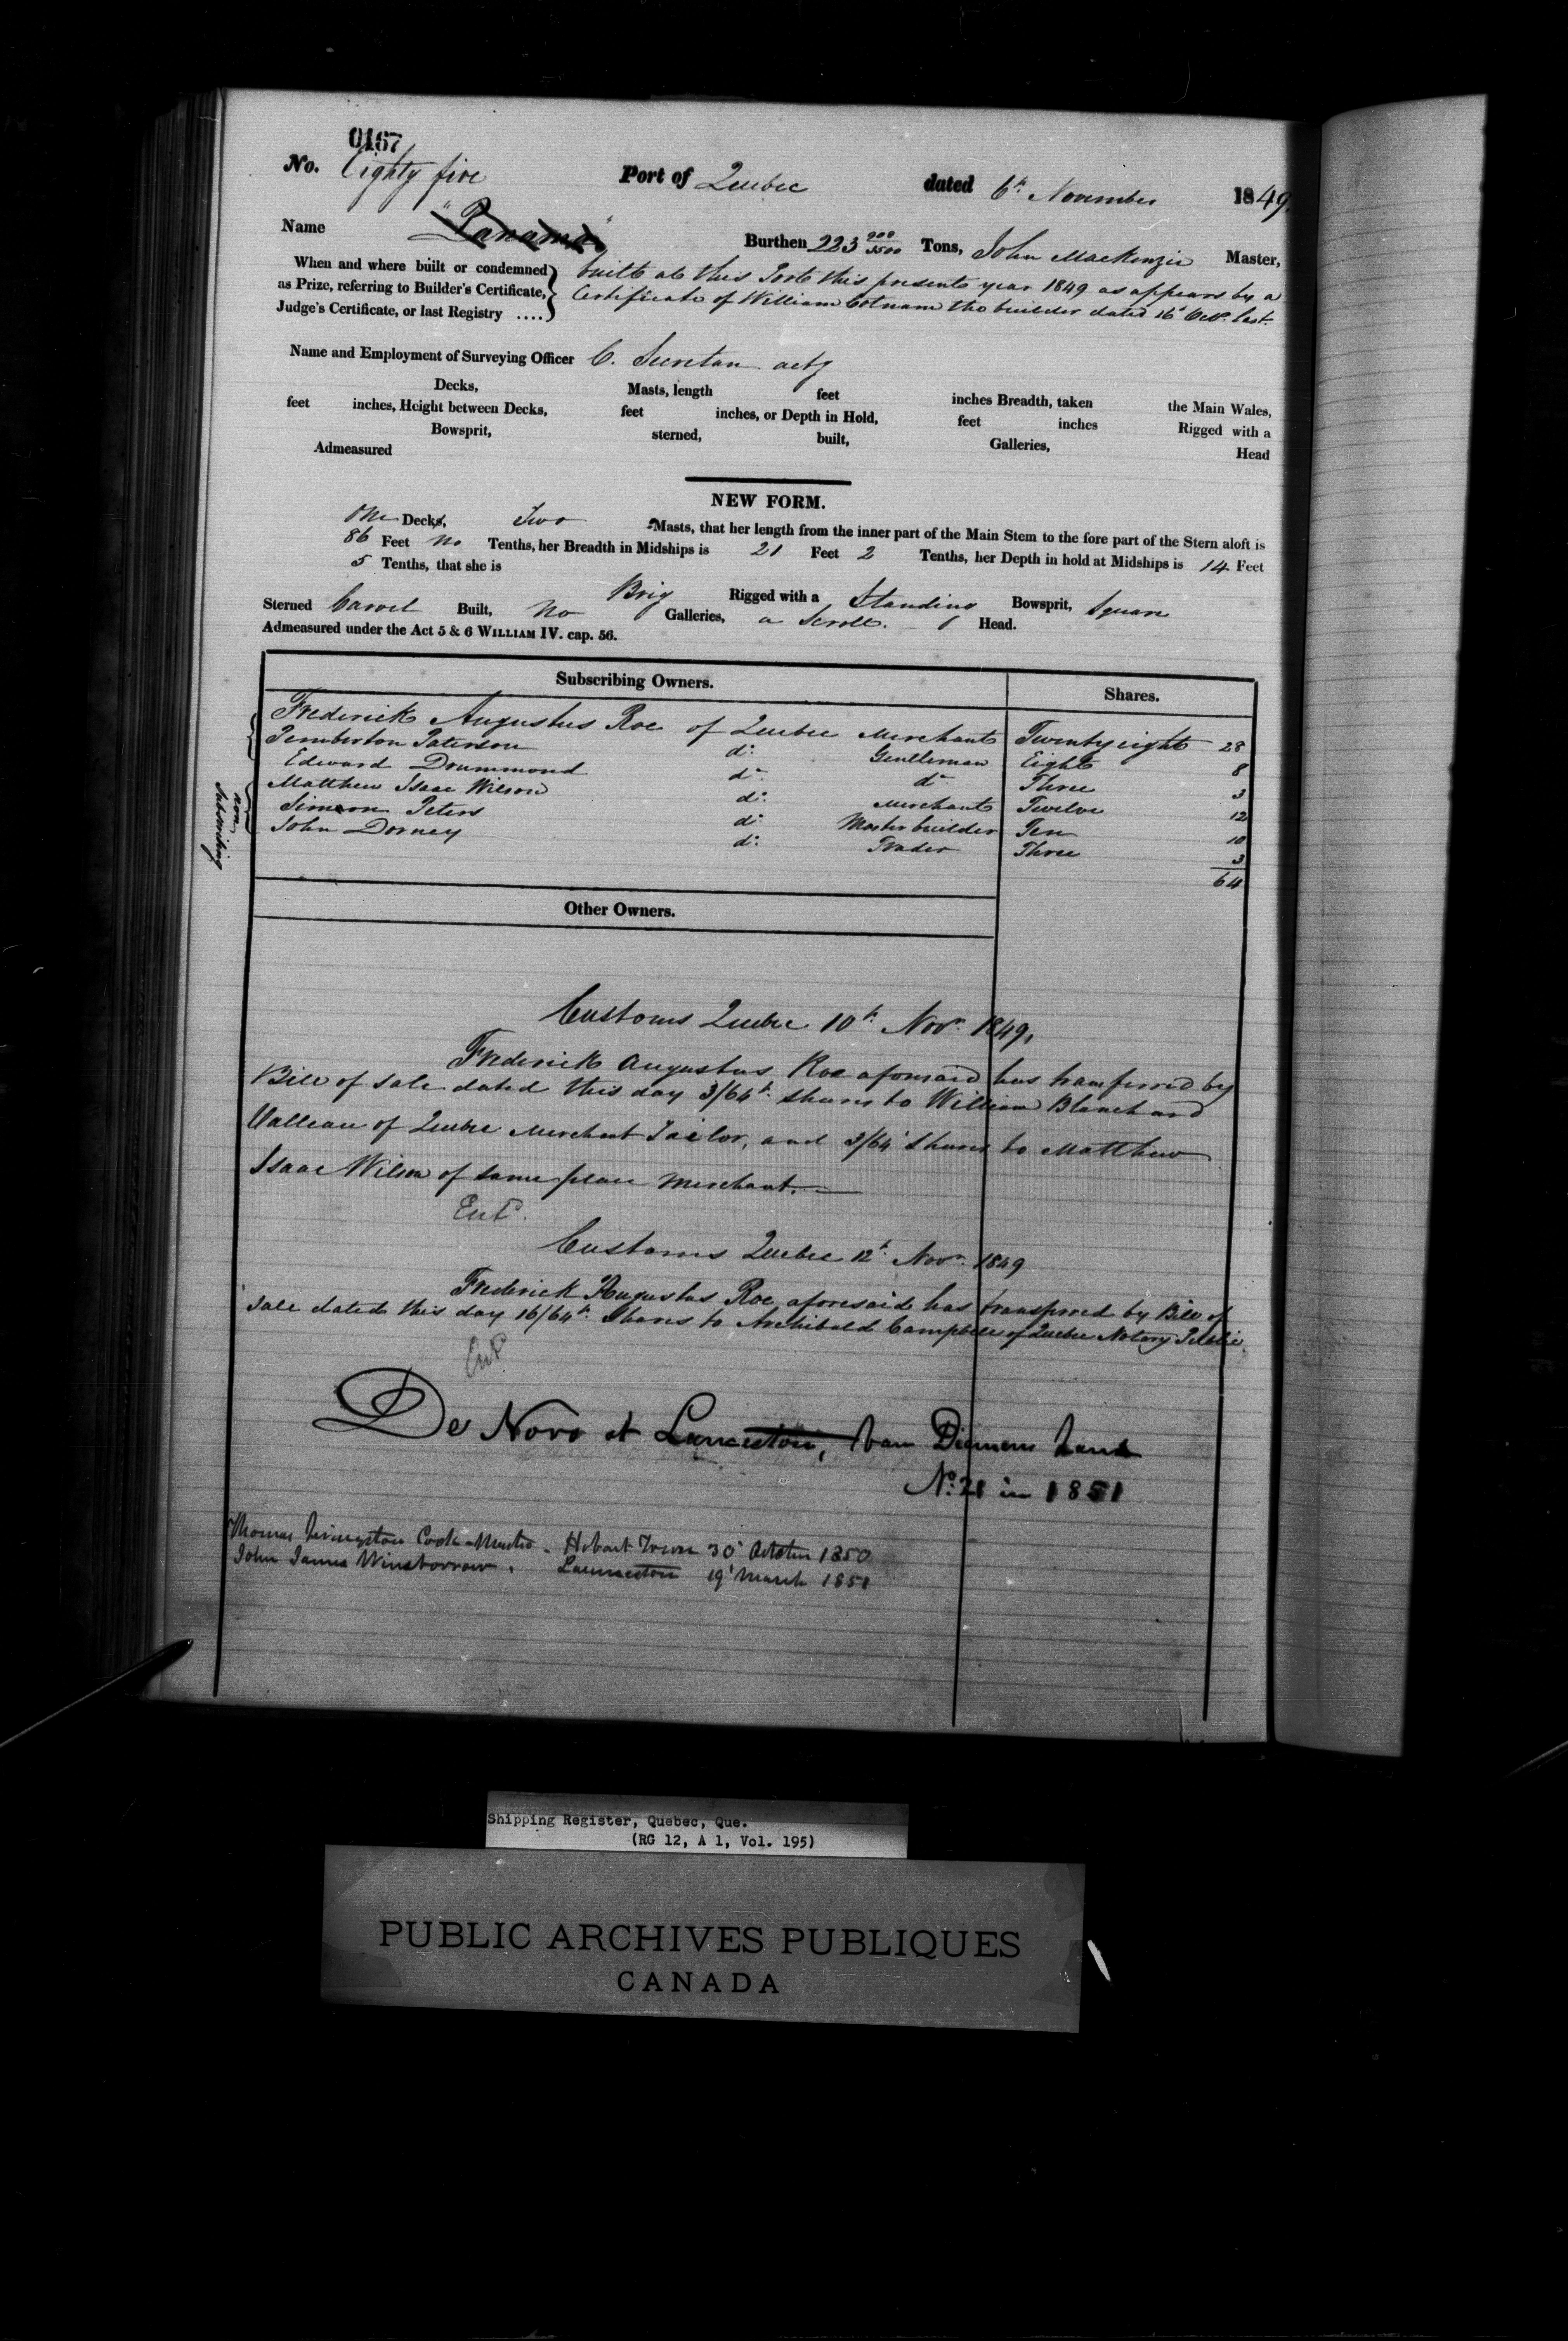 0167
No. Eighty five Port of Quebec dated 6th November 1849.
Name "Panama" Burthen 223 900/3500 Tons, John MacKenzie Master,
When and where built or condemned as Prize, referring to Builder's Certificate, Judge's Certificate, or last Registry ....} built at this Port this present year 1849 as appears by a
Certificate of William Cotnam the builder dated 16th Octr. last.
Name and Employment of Surveying Officer C. Secretan actg
Decks, Masts, length feet inches Breadth, taken the Main Wales,
feet inches, Height between Decks, feet inches, or Depth in Hold, feet inches Rigged with a
Bowsprit, sterned, built, Galleries, Head
Admeasured
NEW FORM.
One Decks, Two Masts, that her length from the inner part of the Main Stem to the fore part of the Stern aloft is
86 Feet no Tenths, her Breadth in Midships is 21 Feet 2 Tenths, her Depth in hold at Midships is 14 Feet
5 Tenths, that she is Brig Rigged with a Standing Bowsprit, Square
Sterned Carvel Built, No Galleries, a Scroll Head.
Admeasured under the Act 5 & 6 WILLIAM IV. cap. 56.
Subscribing Owners. Shares.
Frederick Augustus Roe of Quebec Merchant Twenty eight 28
Pemberton Paterson do. Gentleman Eight 8
Edward Drummond do. do. Three 3
Matthew Isaac Wilson do. Merchant Twelve 12
Simeon Peters do. Master builder Ten 10
John Dorney do. Trader Three 3
64
non
Subscribing
Other Owners.
Customs Quebec 10th Novr. 1849.
Frederick Augustus Roe aforesaid has transferred by
Bill of Sale dated this day 3/64th Shares to William Blanchard
Valleau of Quebec Merchant Tailor, and 3/64 Shares to Matthew
Isaac Wilson of same place Merchant.
Entd.
Customs Quebec 12th Novr. 1849
Frederick Augustus Roe aforesaid has transferred by Bill of
Sale dated this day 16/64th Shares to Archibald Campbell of Quebec Notary Public.
Entd
De Novo at Launceston, Van Diemens Land
No. 21 in 1851
Thomas Livingston Cook Master - Hobart Town 30 October 1850
John James Winsborrow . Launceston 19 March 1851
Shipping Register, Quebec, Que.
(RG 12, A 1, Vol. 195)
PUBLIC ARCHIVES PUBLIQUES
CANADA